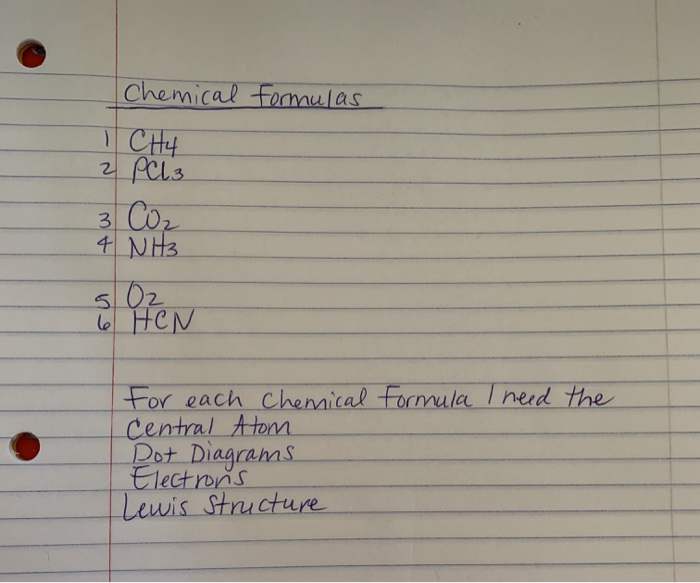 Chemical Formulas
1 CH4
2 PCl3
3 CO2
4 NH3
5 O2
6 HCN
For each chemical formula I need the
Central Atom
Dot Diagrams
Electrons
Lewis Structure